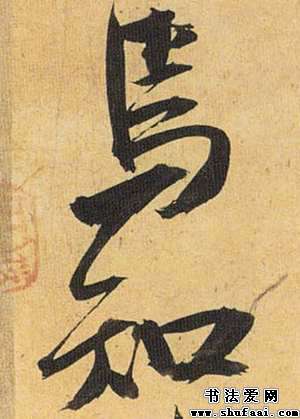 焉
知
书法爱网
www.shufaai.com